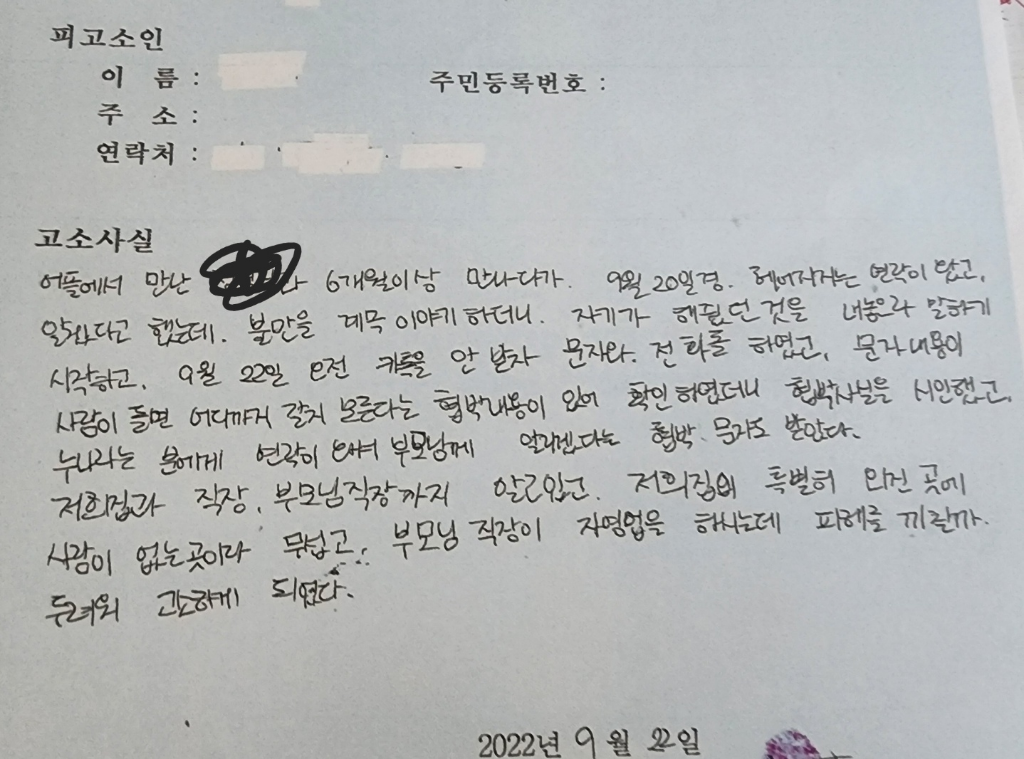 피고소인
이 름 : 주민등록번호 :
주 소 :
연락처 :
고소사실
어플에서 만난 6개월이상 만나다가. 9월 20일경. 헤어지자는 연락이 왔고,
알았다고 했는데. 불만을 계속 이야기 하더니. 자기가 해줬던 것을 내놓으라 말하기
시작하고, 9월 22일 오전 카톡을 안 받자 문자와. 전화를 하였고, 문자내용이
사람이 돌면 어디까지 갈지 모른다는 협박내용이 있어 확인하였더니 협박사실을 시인했고,
누나라는 분에게 연락이 와서 부모님께 알리겠다는 협박. 문자도 받았다.
저희집과 직장, 부모님직장까지 알고있고. 저희집의 특별히 외진 곳에
사람이 없는곳이라 무섭고, 부모님 직장이 자영업을 하시는데 피해를 끼칠까.
두려워 고소하게 되었다.
2022년 9월 22일